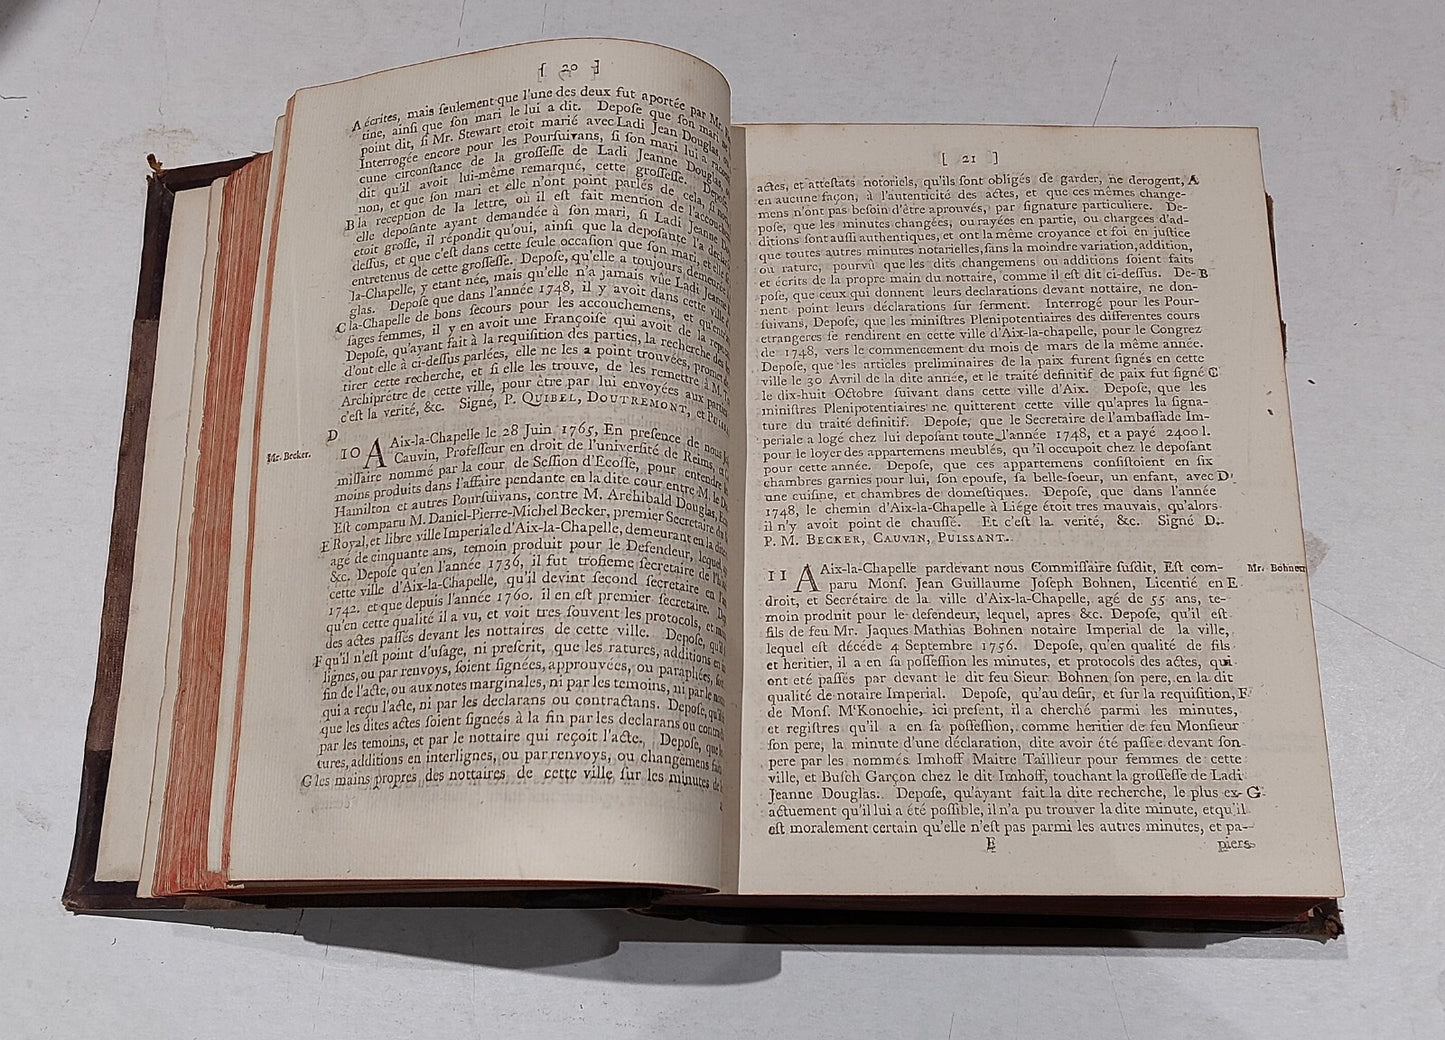 [ 20 ]
A écrites, mais ſeulement que l'une des deux fut aportée par Mr.
tine, ainſi que ſon mari le lui a dit. Depoſe que ſon mari ne
point dit, ſi Mr. Stewart etoit marié avec Ladi Jean Douglas,
Interrogée encore pour les Pourſuivans, ſi ſon mari lui a
cune circonſtance de la groſſeſſe de Ladi Jeanne Douglas,
dit qu'il avoit lui-même remarqué, cette groſſeſſe. Depoſe,
non, et que ſon mari et elle n'ont point parlés de cela, ſi
B la reception de la lettre, où il eſt fait mention de
elle depoſante ayant demandée à ſon mari, ſi Ladi Jeanne
etoit groſſe, il répondit qu'oui, ainſi que la depoſante l'a
deſſus, et que c'eſt dans cette ſeule occaſion que ſon mari, et elle
entretenus de cette groſſeſſe. Depoſe, qu'elle a toujours
la-Chapelle, y etant née, mais qu'elle n'a jamais vûe Ladi Jeanne
glas. Depoſe que dans l'année 1748, il y avoit dans cette ville
C la-Chapelle de bons ſecours pour les accouchemens, et
ſages femmes, il y en avoit une Françoiſe qui avoit de la
Depoſe, qu'ayant fait à la requiſition des parties, la recherche des
d'ont elle à ci-deſſus parlées, elle ne les a point trouvées,
tirer cette recherche, et ſi elle les trouve, de les remettre à M.
Archiprétre de cette ville, pour être par lui envoyées aux
c'eſt la verité, &c. Signé, P. QUIBEL, DOUTREMONT, et
D
Mr. Becker.
10 A Aix-la-Chapelle le 28 Juin 1765, En preſence de nous
Cauvin, Profeſſeur en droit de l'univerſité de Reims,
miſſaire nommé par la cour de Seſſion d'Ecoſſe, pour entendre
moins produits dans l'affaire pendante en la dite cour entre M. le
Hamilton et autres Pourſuivans, contre M. Archibald Douglas,
Eſt comparu M. Daniel-Pierre-Michel Becker, premier Secretaire du
E Royal, et libre ville Imperiale d'Aix-la-Chapelle, demeurant en la dite
agé de cinquante ans, temoin produit pour le Defendeur, lequel
&c. Depoſe qu'en l'année 1736, il fut troſieme ſecretaire de
cette ville d'Aix-la-Chapelle, qu'il devint ſecond ſecretaire en
1742. et que depuis l'année 1760. il en eſt premier ſecretaire.
qu'en cette qualité il a vu, et voit tres ſouvent les protocols, et
des actes paſſés devant les nottaires de cette ville. Depoſe,
F qu'il n'eſt point d'uſage, ni preſcrit, que les ratures, additions en
lignes, ou par renvoys, ſoient ſignées, approuvées, ou paraphées,
fin de l'acte, ou aux notes marginales, ni par les temoins, ni par le
qui a reçu l'acte, ni par les declarans ou contractans. Depoſe,
que les dites actes ſoient ſigneés à la fin par les declarans ou
par les temoins, et par le nottaire qui reçoit l'acte. Depoſe, que
tures, additions en interlignes, ou par renvoys, ou changemens
G les mains propres des nottaires de cette ville, ſur les minutes
[ 21 ]
actes, et atteſtats notoriels, qu'ils ſont obligés de garder, ne derogent, A
en aucune façon, à l'autenticité des actes, et que ces mêmes change-
mens n'ont pas beſoin d'être aprouvés, par ſignature particuliere. De-
poſe, que les minutes changées, ou rayées en partie, ou chargees d'ad-
ditions ſont auſſi authentiques, et ont la même croyance et foi en juſtice
que toutes autres minutes notarielles, ſans la moindre variation, addition,
ou rature, pourvû que les dits changemens ou additions ſoient faits
et écrits de la propre main du nottaire, comme il eſt dit ci-deſſus. De- B
poſe, que ceux qui donnent leurs declarations devant nottaire, ne don-
nent point leurs déclarations ſur ſerment. Interrogé pour les Pour-
ſuivans, Depoſe, que les miniſtres Plenipotentiaires des differentes cours
etrangeres ſe rendirent en cette ville d'Aix-la-chapelle, pour le Congrez
de 1748, vers le commencement du mois de mars de la même année.
Depoſe, que les articles preliminaires de la paix furent ſignés en cette
ville le 30 Avril de la dite année, et le traité definitif de paix fut ſigné C
le dix-huit Octobre ſuivant dans cette ville d'Aix. Depoſe, que les
miniſtres Plenipotentiaires ne quitterent cette ville qu'apres la ſigna-
ture du traité definitif. Depoſe, que le Secretaire de l'ambaſſade Im-
periale a logé chez lui depoſant toute l'année 1748, et a payé 2400 l.
pour le loyer des appartemens meublés, qu'il occupoit chez le depoſant
pour cette année. Depoſe, que ces appartemens conſiſtoient en ſix
chambres garnies pour lui, ſon epouſe, ſa belle-ſoeur, un enfant, avec D
une cuiſine, et chambres de domeſtiques. Depoſe, que dans l'année
1748, le chemin d'Aix-la-Chapelle à Liége étoit tres mauvais, qu'alors
il n'y avoit point de chauſſé. Et c'eſt la verité, &c. Signé D.
P. M. BECKER, CAUVIN, PUISSANT.
11 A Aix-la-Chapelle pardevant nous Commiſſaire ſuſdit, Eſt com-
Mr. Bohnen
paru Monſ. Jean Guillaume Joſeph Bohnen, Licentié en E
droit, et Secrétaire de la ville d'Aix-la-Chapelle, agé de 55 ans, te-
moin produit pour le defendeur, lequel, apres &c. Depoſe, qu'il eſt
fils de feu Mr. Jaques Mathias Bohnen notaire Imperial de la ville,
lequel eſt décéde 4 Septembre 1756. Depoſe, qu'en qualité de fils
et heritier, il a en ſa poſſeſſion les minutes, et protocols des actes, qui
ont eté paſſés par devant le dit feu Sieur Bohnen ſon pere, en la dit
qualité de notaire Imperial. Depoſe, qu'au deſir, et ſur la requiſition, F
de Monſ. McKonochie, ici preſent, il a cherché parmi les minutes,
et regiſtres qu'il a en ſa poſſeſſion, comme heritier de feu Monſieur
ſon pere, la minute d'une déclaration, dite avoir été paſſée devant ſon
pere par les nommés Imhoff Maitre Taillieur pour femmes de cette
ville, et Buſch Garçon chez le dit Imhoff, touchant la groſſeſſe de Ladi
Jeanne Douglas. Depoſe, qu'ayant fait la dite recherche, le plus ex- G
actuement qu'il lui a été poſſible, il n'a pu trouver la dite minute, et qu'il
eſt moralement certain qu'elle n'eſt pas parmi les autres minutes, et pa-
E
piers